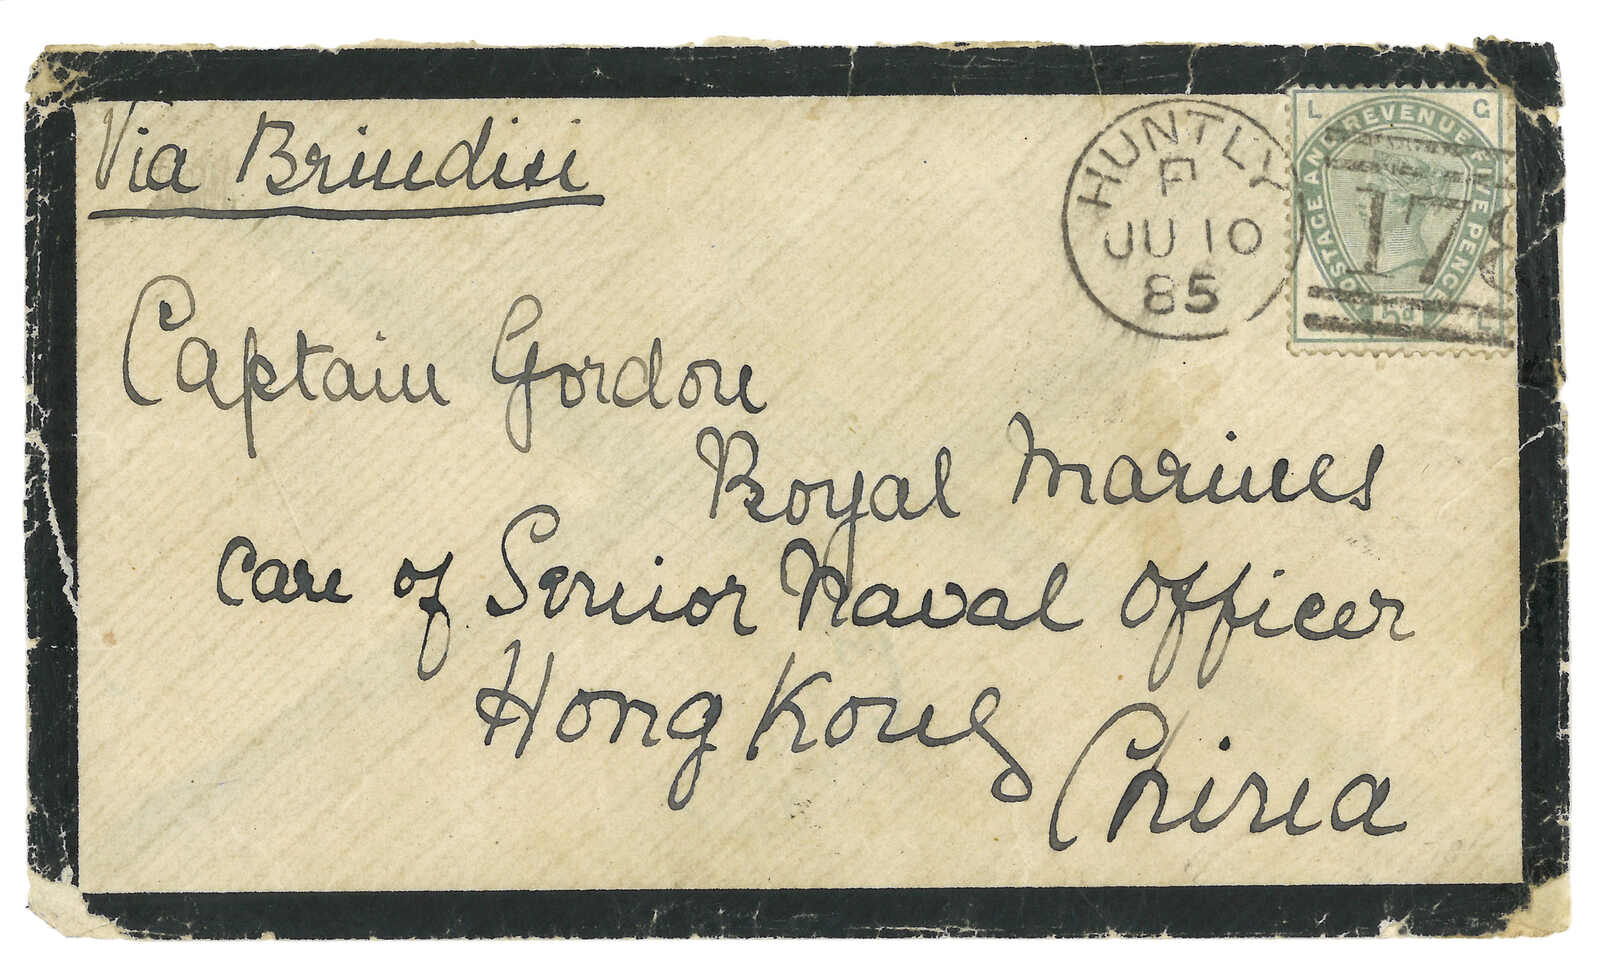 Via Brindisi
HUNTLY
P
JU 10
85
L G
POSTAGE AND REVENUE FIVE PENCE
5d
L
Captain Gordon
Royal Marines
Care of Senior Naval Officer
Hong Kong
China